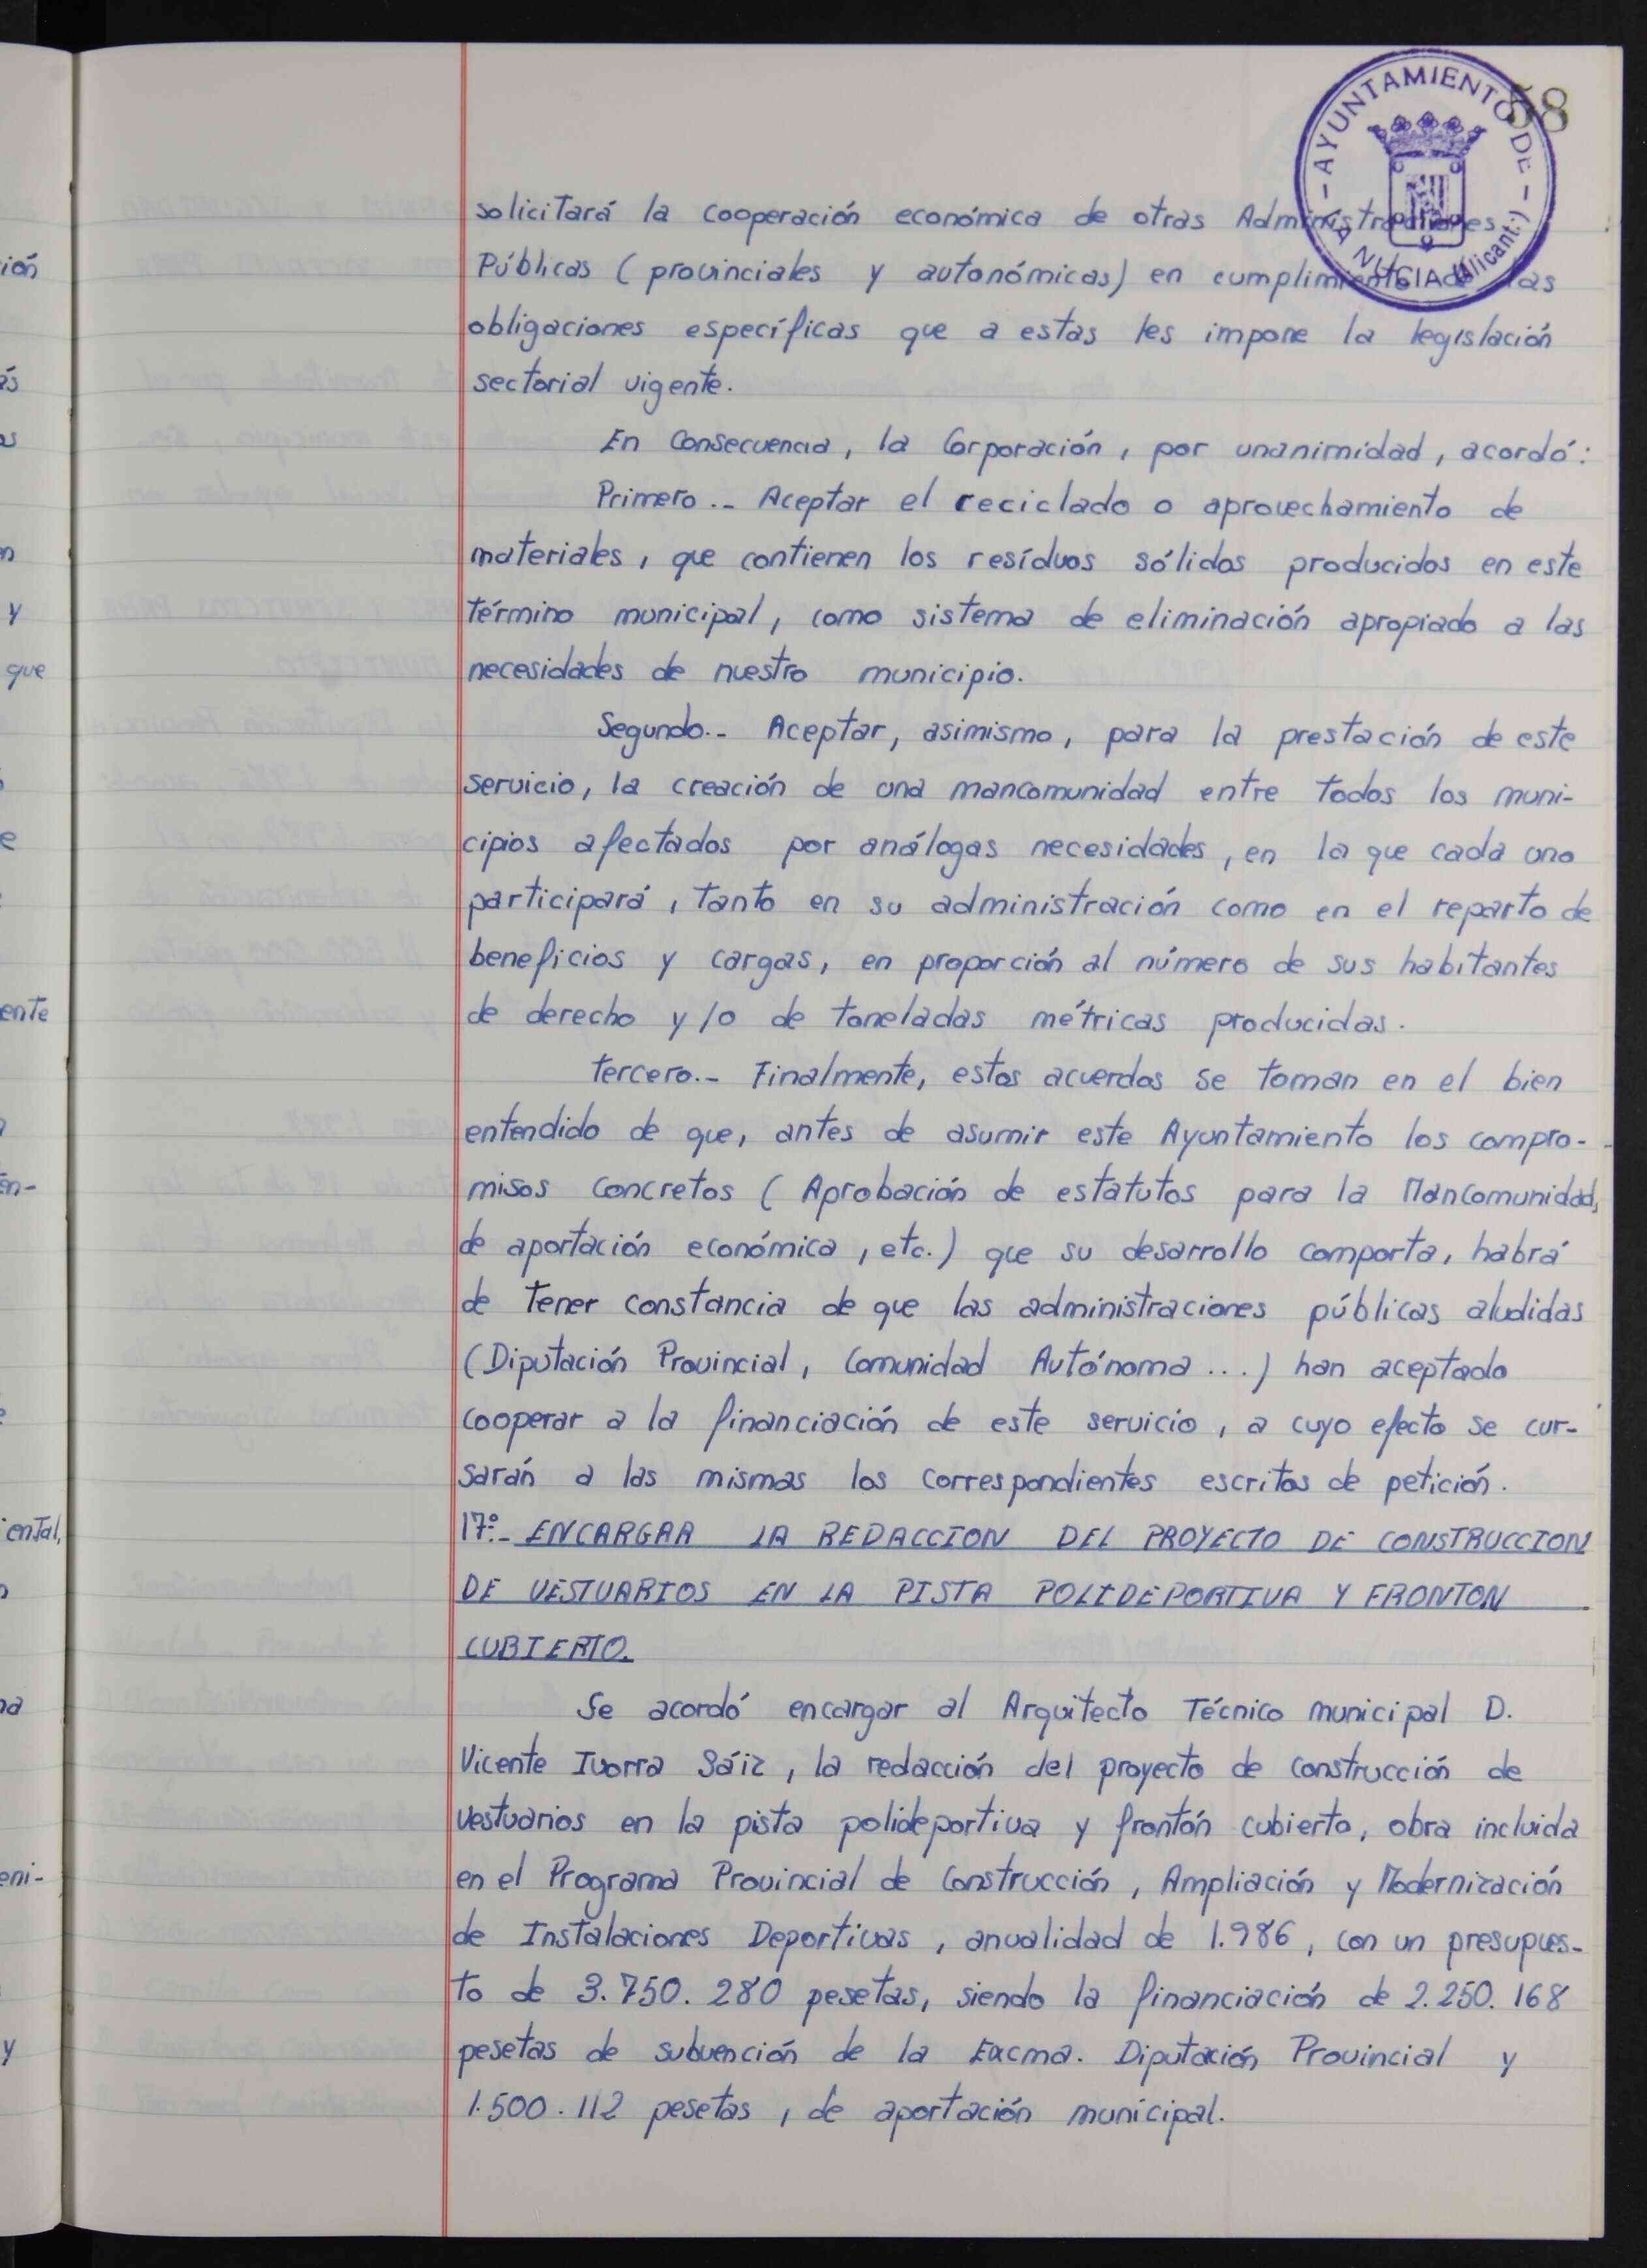 58
AYUNTAMIENTO DE
LA NUCIA (Alicant.)
solicitará la cooperación económica de otras Administraciones
Públicas (provinciales y autonómicas) en cumplimiento de las
obligaciones específicas que a estas les impone la legislación
sectorial vigente.
En Consecuencia, la Corporación, por unanimidad, acordó:
Primero.- Aceptar el reciclado o aprovechamiento de
materiales, que contienen los resíduos sólidos producidos en este
término municipal, como sistema de eliminación apropiado a las
necesidades de nuestro municipio.
Segundo.- Aceptar, asimismo, para la prestación de este
servicio, la creación de una mancomunidad entre todos los muni-
cipios afectados por análogas necesidades, en la que cada uno
participará, tanto en su administración como en el reparto de
beneficios y cargas, en proporción al número de sus habitantes
de derecho y/o de toneladas métricas producidas.
Tercero.- Finalmente, estos acuerdos se toman en el bien
entendido de que, antes de asumir este Ayuntamiento los compro-
misos concretos (Aprobación de estatutos para la Mancomunidad,
de aportación económica, etc.) que su desarrollo comporta, habrá
de tener constancia de que las administraciones públicas aludidas
(Diputación Provincial, Comunidad Autónoma ...) han aceptado
cooperar a la financiación de este servicio, a cuyo efecto se cur-
sarán a las mismas los correspondientes escritos de petición.
17º.- ENCARGAR LA REDACCION DEL PROYECTO DE CONSTRUCCION
DE VESTUARIOS EN LA PISTA POLIDEPORTIVA Y FRONTON
CUBIERTO.
Se acordó encargar al Arquitecto Técnico municipal D.
Vicente Ivorra Sáiz, la redacción del proyecto de construcción de
vestuarios en la pista polideportiva y frontón cubierto, obra incluida
en el Programa Provincial de Construcción, Ampliación y Modernización
de Instalaciones Deportivas, anualidad de 1.986, con un presupues-
to de 3.750.280 pesetas, siendo la financiación de 2.250.168
pesetas de subvención de la Excma. Diputación Provincial y
1.500.112 pesetas, de aportación municipal.